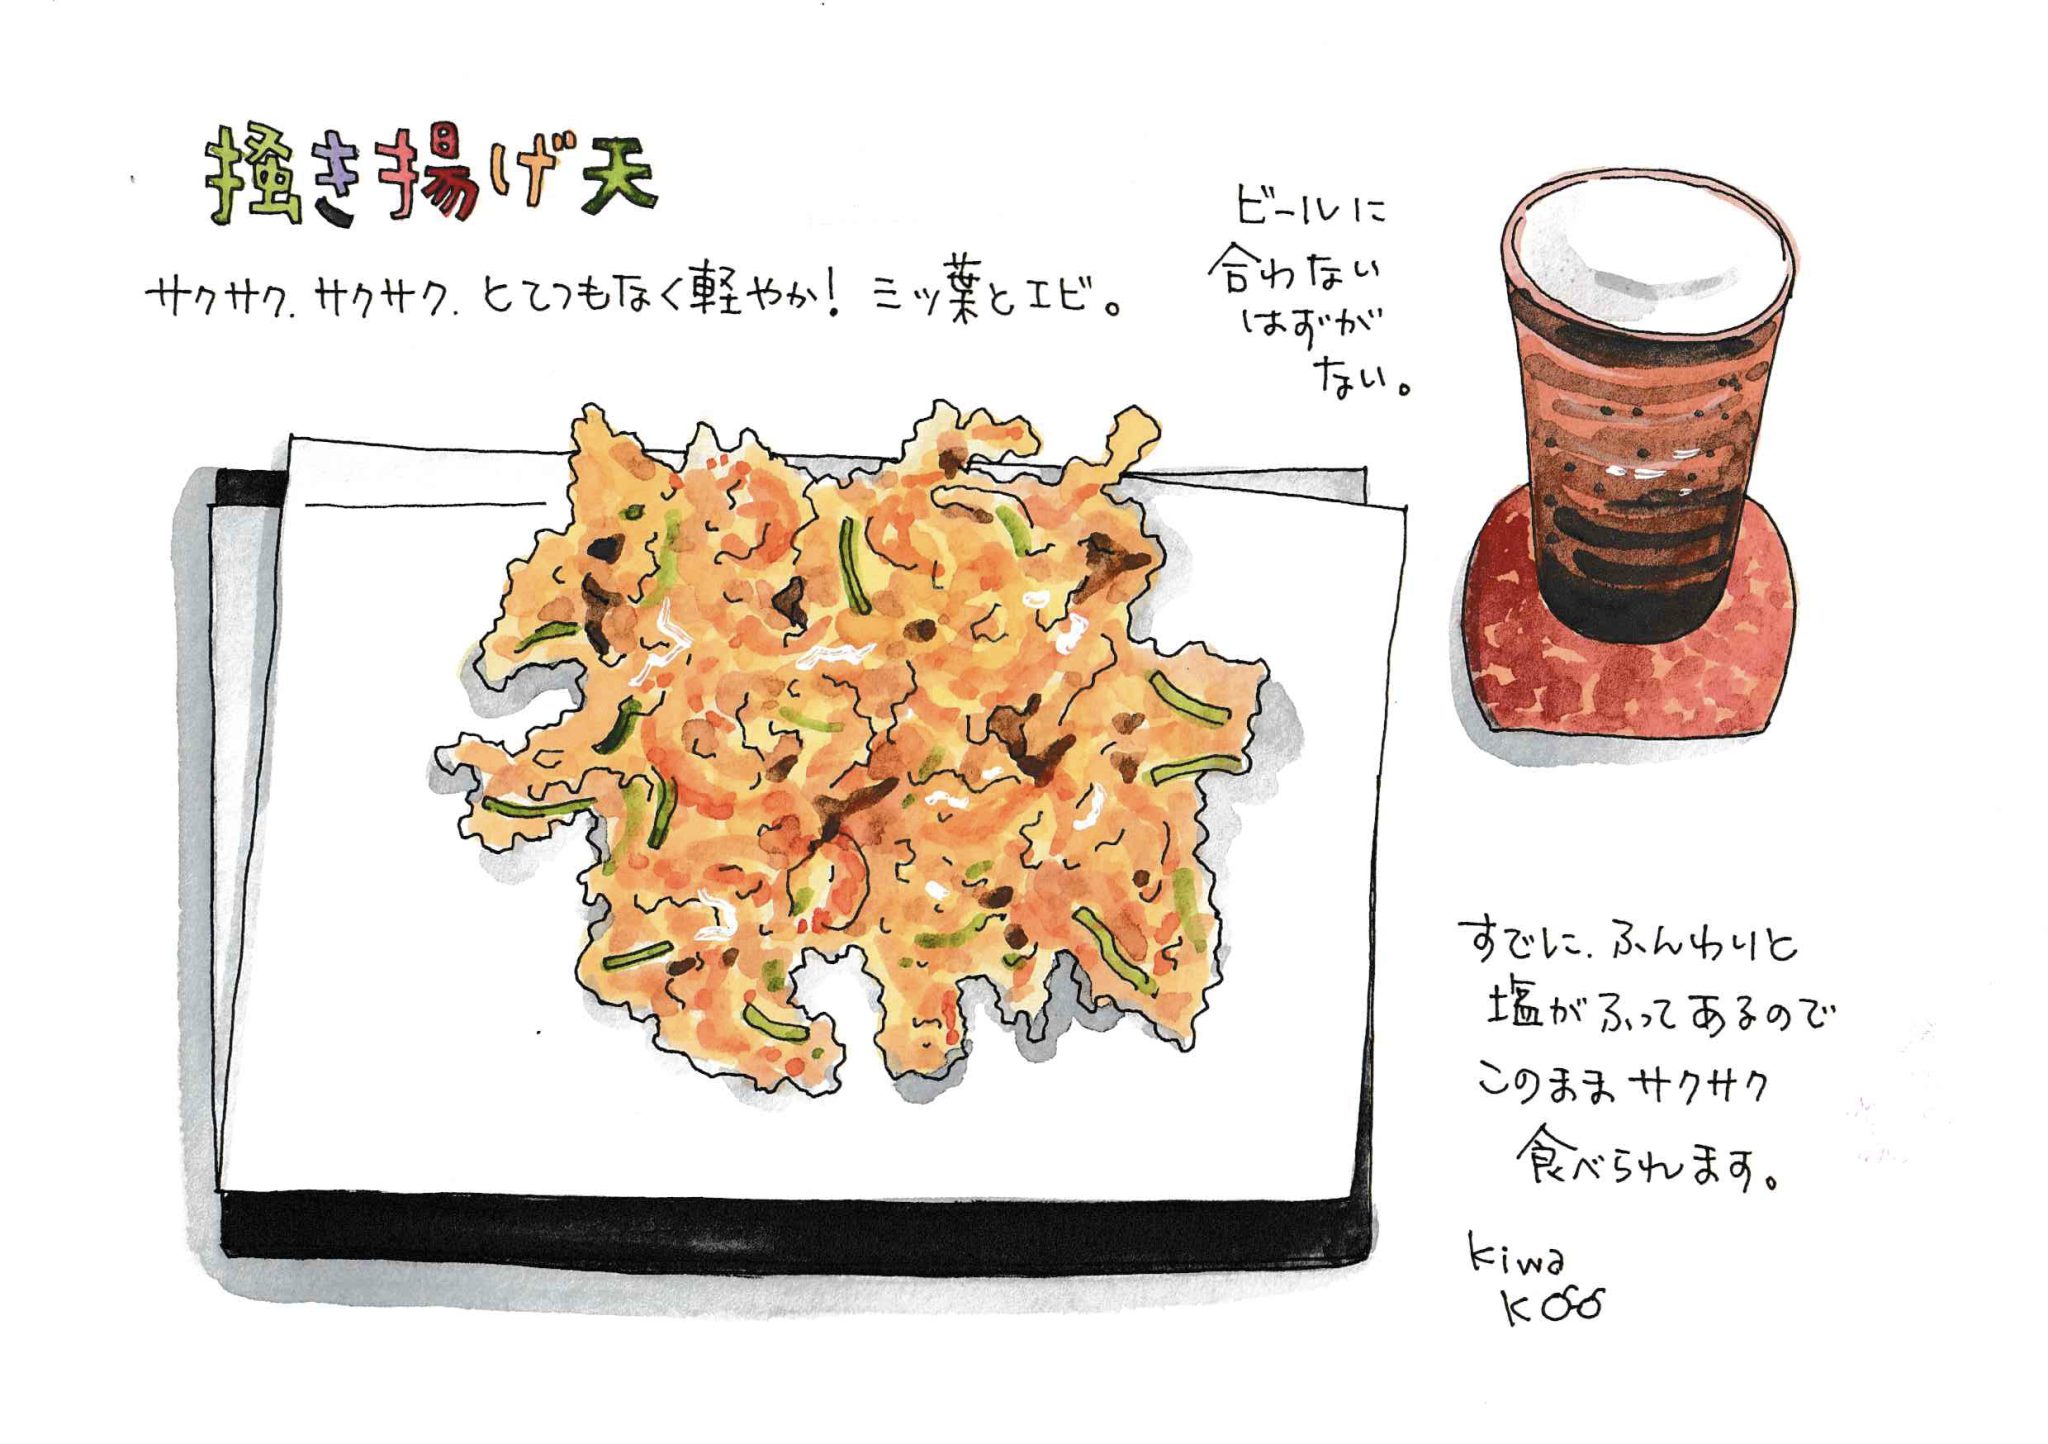 掻き揚げ天
サクサク.サクサク.とてつもなく軽やか!ミッ葉とエビ。
ビールに
合わない
はずが
ない。
すでに.ふんわりと
塩がふってあるので
このままサクサク
食べられます。
kiwa
koo